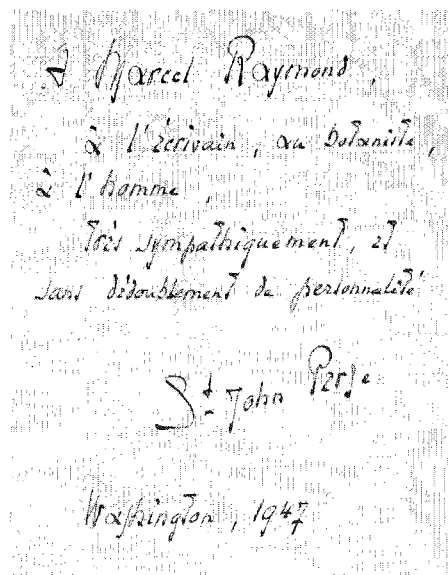 À Marcel Raymond,
à l'écrivain, au botaniste,
à l'homme,
très sympathiquement, et
sans dédoublement de personnalité
St-John Perse
Washington, 1947